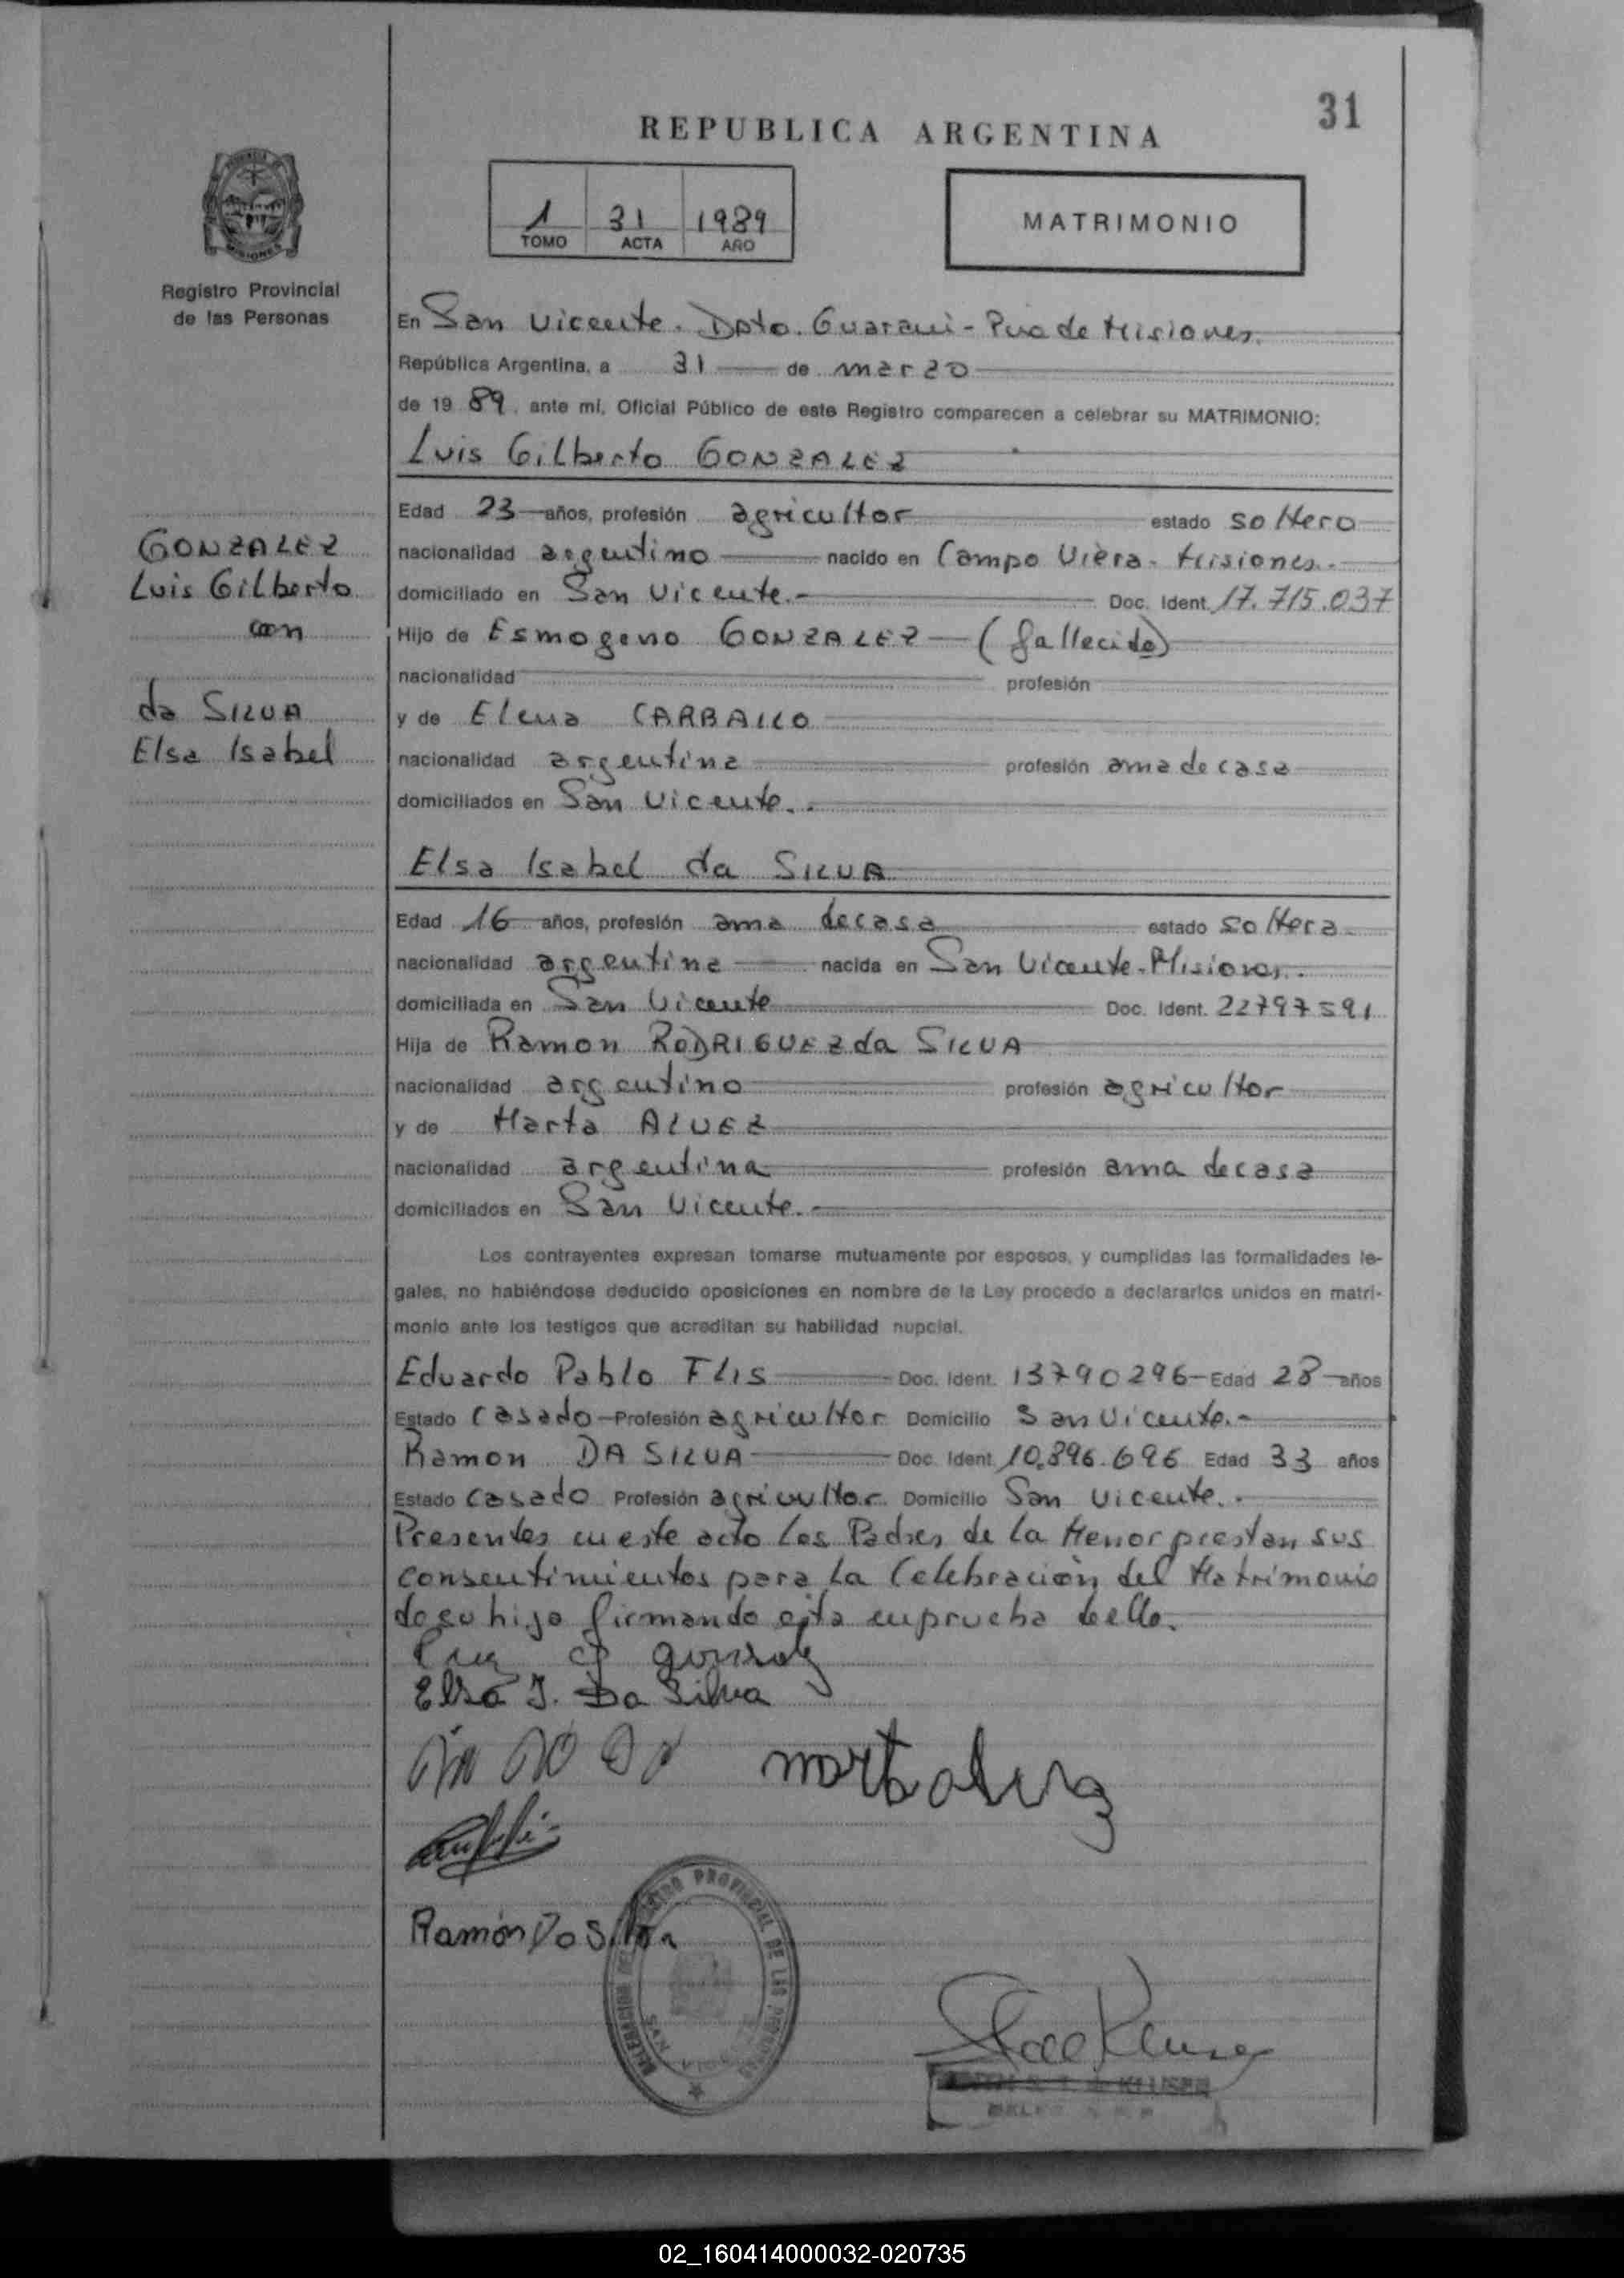 31
REPUBLICA ARGENTINA
1 31 1989
TOMO ACTA AÑO
MATRIMONIO
MISIONES
Registro Provincial
de las Personas
En San Vicente. Dpto. Guarani - Pcia de Misiones.
República Argentina, a 31 de marzo
de 19 89, ante mi, Oficial Público de este Registro comparecen a celebrar su MATRIMONIO:
Luis Gilberto GONZALEZ
GONZALEZ
Luis Gilberto
con
da SILVA
Elsa Isabel
Edad 23 años, profesión agricultor estado soltero
nacionalidad argentino nacido en Campo Viera - Misiones.
domiciliado en San Vicente.- Doc. Ident. 17.715.037
Hijo de Esmogeno GONZALEZ (fallecido)
nacionalidad profesión
y de Elena CARBALLO
nacionalidad argentina profesión ama de casa
domiciliados en San Vicente.
Elsa Isabel da SILVA
Edad 16 años, profesión ama de casa estado soltera
nacionalidad argentina nacida en San Vicente - Misiones.
domiciliada en San Vicente Doc. Ident. 22797591
Hija de Ramon RODRIGUEZ da SILVA
nacionalidad argentino profesión agricultor
y de Marta ALVEZ
nacionalidad argentina profesión ama de casa
domiciliados en San Vicente.
Los contrayentes expresan tomarse mutuamente por esposos, y cumplidas las formalidades le-
gales, no habiéndose deducido oposiciones en nombre de la Ley procedo a declararlos unidos en matri-
monio ante los testigos que acreditan su habilidad nupcial.
Eduardo Pablo FLIS Doc. Ident. 13790296 Edad 28 años
Estado Casado Profesión agricultor Domicilio San Vicente.-
Ramon DA SILVA Doc. Ident. 10.896.696 Edad 33 años
Estado Casado Profesión agricultor Domicilio San Vicente.
Presentes en este acto los Padres de la Menor prestan sus
consentimientos para la Celebración del Matrimonio
de su hija firmando esta en prueba de ello.
Elsa I. Da Silva
marta alvez
Ramón Da Silva
DELEGACION DEL REGISTRO PROVINCIAL DE LAS PERSONAS
02_160414000032-020735